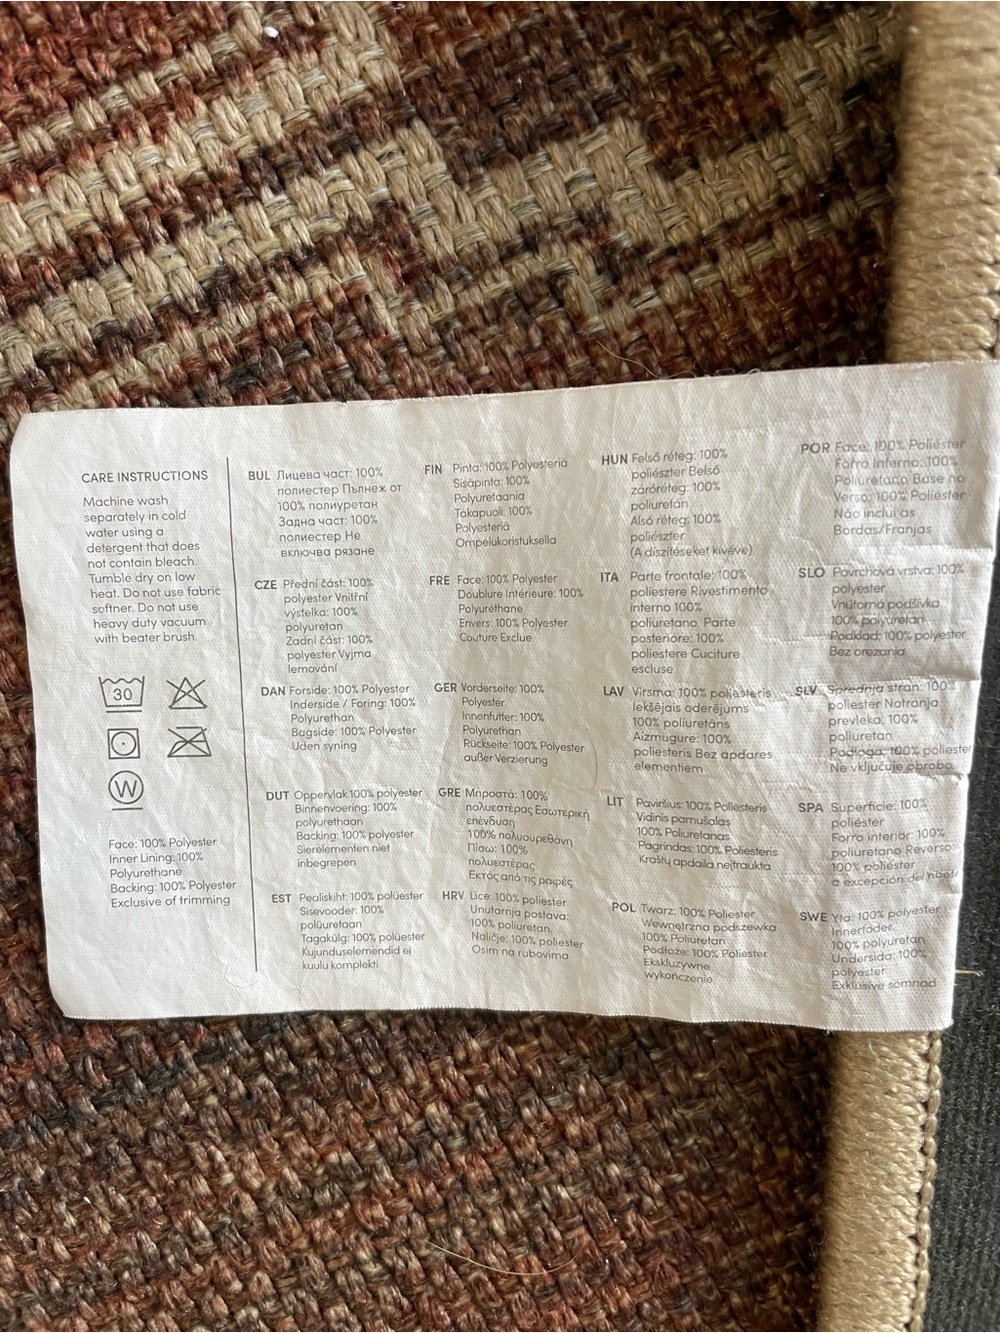 CARE INSTRUCTIONS
Machine wash
separately in cold
water using a
detergent that does
not contain bleach.
Tumble dry on low
heat. Do not use fabric
softner. Do not use
heavy duty vacuum
with beater brush.
30
W
Face: 100% Polyester
Inner Lining: 100%
Polyurethane
Backing: 100% Polyester
Exclusive of trimming
BUL Лицева част: 100%
полиестер Пълнеж от
100% полиуретан
Задна част: 100%
полиестер Не
включва рязане
CZE Přední část: 100%
polyester Vnitřní
výstelka: 100%
polyuretan
Zadní část: 100%
polyester Vyjma
lemování
DAN Forside: 100% Polyester
Inderside / Foring: 100%
Polyurethan
Bagside: 100% Polyester
Uden syning
DUT Oppervlak 100% polyester
Binnenvoering: 100%
polyurethaan
Backing: 100% polyester
Sierelementen niet
inbegrepen
EST Pealiskiht: 100% polüester
Sisevooder: 100%
polüuretaan
Tagakülg: 100% polüester
Kujunduselemendid ei
kuulu komplekti
FIN Pinta: 100% Polyesteriä
Sisäpinta: 100%
Polyuretaania
Takapuoli: 100%
Polyesteriä
Ompelukoristuksella
FRE Face: 100% Polyester
Doublure Intérieure: 100%
Polyuréthane
Envers: 100% Polyester
Couture Exclue
GER Vorderseite: 100%
Polyester
Innenfutter: 100%
Polyurethan
Rückseite: 100% Polyester
außer Verzierung
GRE Μπροστά: 100%
πολυεστέρας Εσωτερική
επένδυση
100% πολυουρεθάνη
Πίσω: 100%
πολυεστέρας
Εκτός από τις ραφές
HRV Lice: 100% poliester
Unutarnja postava:
100% poliuretan.
Naličje: 100% poliester
Osim na rubovima
HUN Felső réteg: 100%
poliészter Belső
záróréteg: 100%
poliuretán
Alsó réteg: 100%
poliészter
(A díszítéseket kivéve)
ITA Parte frontale: 100%
poliestere Rivestimento
interno 100%
poliuretano. Parte
posteriore: 100%
poliestere Cuciture
escluse
LAV Virsma: 100% poliesteris
Iekšējais oderējums
100% poliuretāns
Aizmugure: 100%
poliesteris Bez apdares
elementiem
LIT Paviršius: 100% Poliesteris
Vidinis pamušalas
100% Poliuretanas
Pagrindas: 100% Poliesteris
Kraštų apdaila neįtraukta
POL Twarz: 100% Poliester
Wewnętrzna podszewka
100% Poliuretan
Podłoże: 100% Poliester
Ekskluzywne
wykończenie
POR Face: 100% Poliéster
Forro Inferno: 100%
Poliuretado Base no
Verso: 100% Poliéster
Não inclui as
Bordas/Franjas
SLO Povrchová vrstva: 100%
polyester
Vnútorná podšívka
100% polyuretán
Podklad: 100% polyester
Bez orezania
SLV Sprednja stran: 100%
poliester Notranja
prevleka: 100%
poliuretan
Podloga: 100% poliester
Ne vključuje obrobo
SPA Superficie: 100%
poliéster
Forro interior: 100%
poliuretano Reverso:
100% poliéster
a excepción del ribete
SWE Yta: 100% polyester
Innerfoder:
100% polyuretan
Undersida: 100%
polyester
Exklusive sömnad